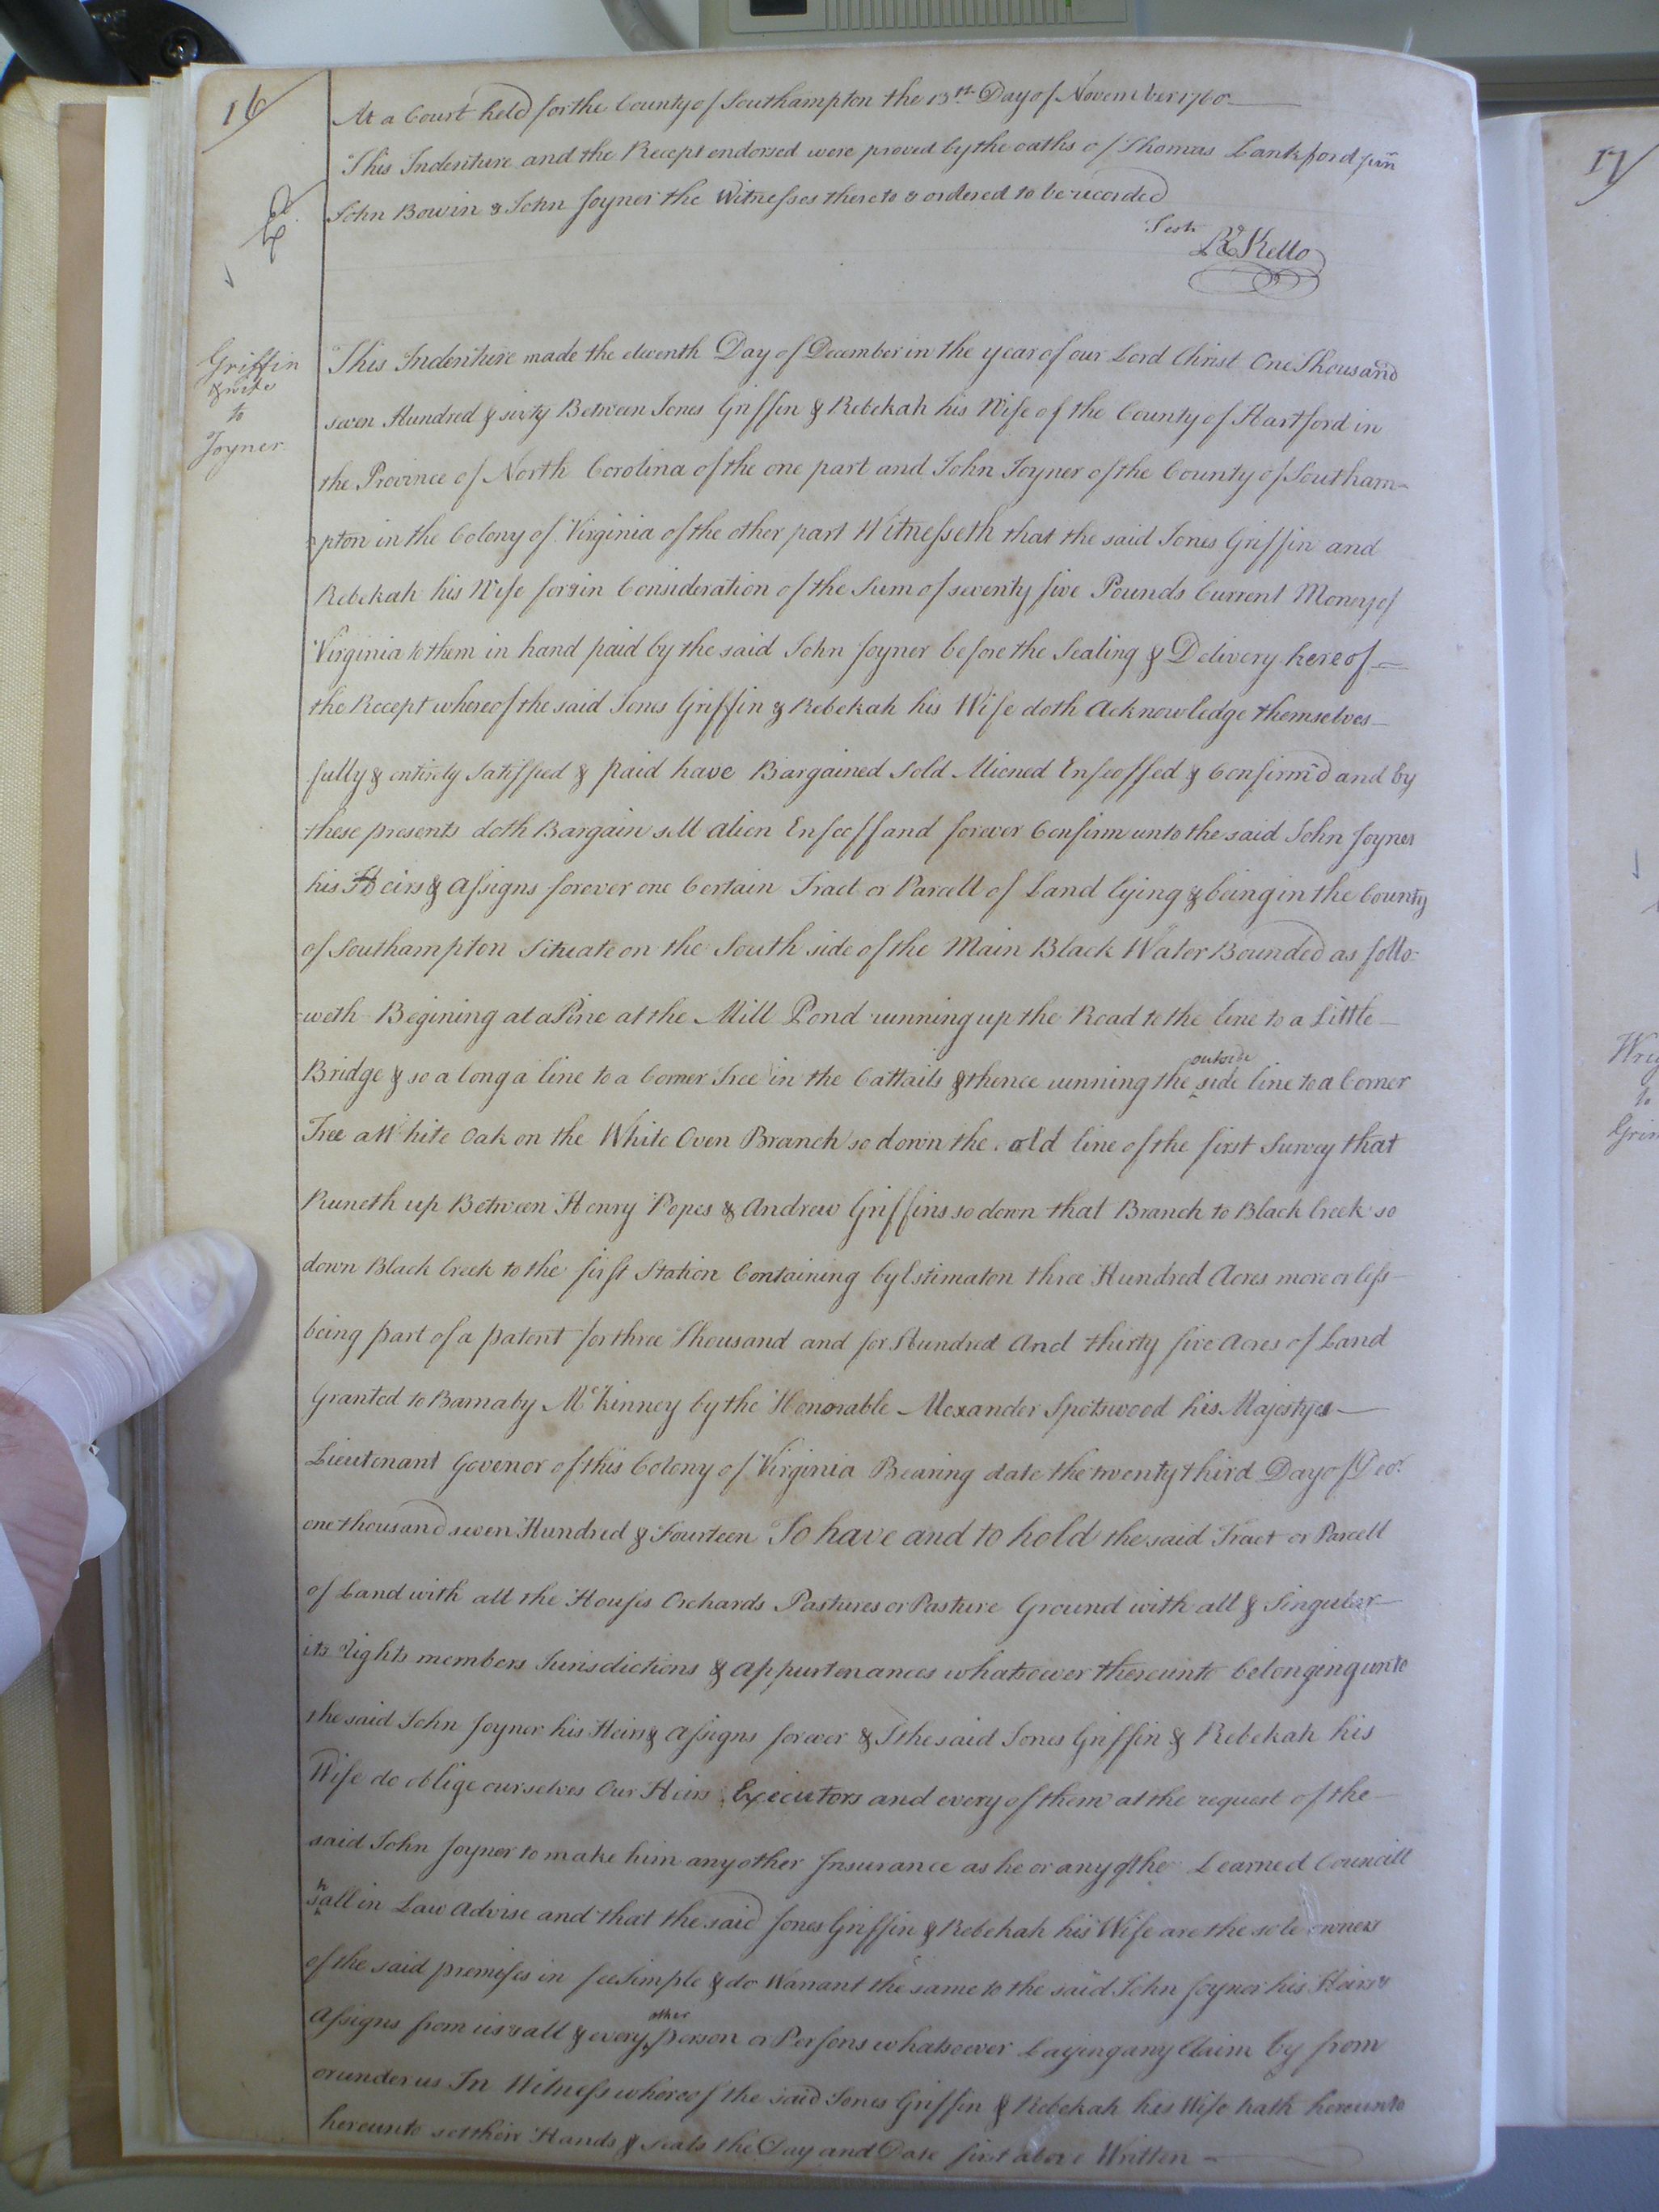 16
At a Court held for the County of Southampton the 13th Day of November 1760
This Indenture and the Recept endorsed were proved by the oaths of Thomas Lankford jun
John Bowin & John Joyner the Witnesses thereto & ordered to be recorded
Test
Rd Kello
Griffin
& wife
to
Joyner
This Indenture made the eleventh Day of December in the year of our Lord Christ One Thousand
seven Hundred & sixty Between Jones Griffin & Rebekah his Wife of the County of Hartford in
the Province of North Corolina of the one part and John Joyner of the County of Southam=
=pton in the Colony of Virginia of the other part Witnesseth that the said Jones Griffin and
Rebekah his Wife for & in Consideration of the Sum of seventy five Pounds Current Money of
Virginia to them in hand paid by the said John Joyner before the Sealing & Delivery hereof
the Recept whereof the said Jones Griffin & Rebekah his Wife doth Acknowledge themselves
fully & entirely Satisfied & paid have Bargained Sold Aliened Enfeoffed & Confirm'd and by
these presents doth Bargain sell alien Enfeoff and forever Confirm unto the said John Joyner
his Heirs & Assigns forever one Certain Tract or Parcell of Land lying & being in the County
of Southampton Situate on the South side of the Main Black Water Bounded as follo=
=weth Begining at a Pine at the Mill Pond running up the Road to the line to a Little
Bridge & so a long a line to a Corner Tree in the Cattails & thence running the outside side line to a Corner
Tree a White Oak on the White Oven Branch so down the old line of the first Survey that
Runeth up Between Henry Popes & Andrew Griffins so down that Branch to Black Creek so
down Black Creek to the first Station Containing by Estimaton three Hundred Acres more or less
being part of a patent for three Thousand and for Hundred And thirty five Acres of Land
Granted to Barnaby McKinney by the Honorable Alexander Spotswood his Majestyes
Lieutenant Govenor of this Colony of Virginia Bearing date the twenty third Day of Decr
one thousand seven Hundred & Fourteen To have and to hold the said Tract or Parcell
of Land with all the Houses Orchards Pastures or Pasture Ground with all & Singular
its rights members Jurisdictions & appurtenances whatsoever thereunto belonging unto
the said John Joyner his Heirs & Assigns forever & I the said Jones Griffin & Rebekah his
Wife do oblige ourselves Our Heirs Executors and every of them at the request of the
said John Joyner to make him any other Insurance as he or any other Learned Councill
shall in Law Advise and that the said Jones Griffin & Rebekah his Wife are the sole owners
of the said premises in fee Simple & do Warrant the same to the said John Joyner his Heirs &
Assigns from us & all & every other person or Persons whatsoever Laying any Claim by from
or under us In Witness whereof the said Jones Griffin & Rebekah his Wife hath hereunto
hereunto set their Hands & seals the Day and Date first above Written
17
to